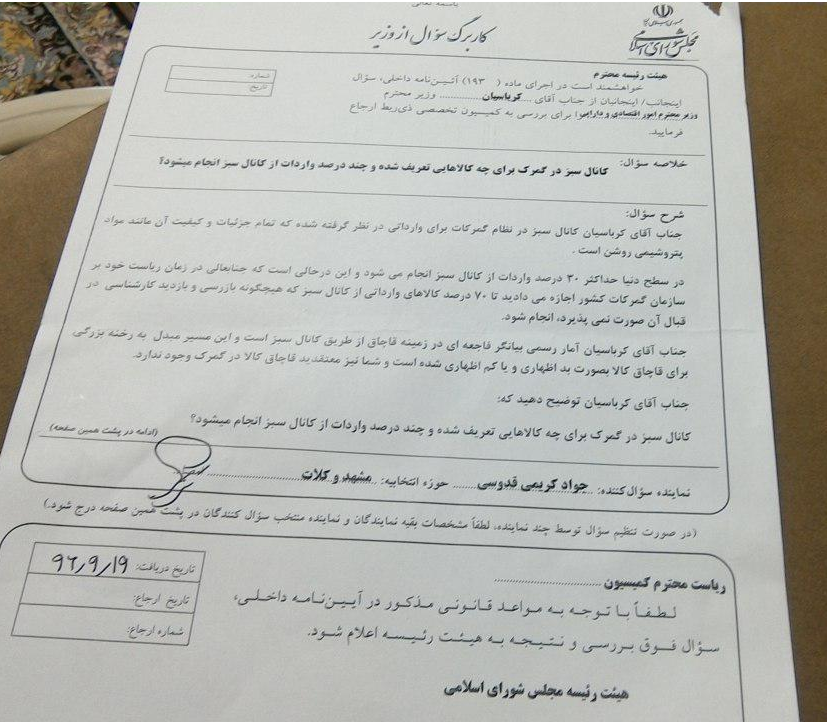 باسمه تعالی
مجلس شورای اسلامی
کاربرگ سؤال از وزیر
شماره:
تاریخ:
هیئت رئیسه محترم
خواهشمند است در اجرای ماده (۱۹۳) آئین‌نامه داخلی، سؤال
اینجانب/ اینجانبان از جناب آقای کرباسیان وزیر محترم
وزیر محترم امور اقتصادی و دارایی را برای بررسی به کمیسیون تخصصی ذی‌ربط ارجاع
فرمایید.
خلاصه سؤال: کانال سبز در گمرک برای چه کالاهایی تعریف شده و چند درصد واردات از کانال سبز انجام میشود؟
شرح سؤال:
جناب آقای کرباسیان کانال سبز در نظام گمرکات برای وارداتی در نظر گرفته شده که تمام جزئیات و کیفیت آن مانند مواد
پتروشیمی روشن است.
در سطح دنیا حداکثر ۳۰ درصد واردات از کانال سبز انجام می شود و این درحالی است که جنابعالی در زمان ریاست خود بر
سازمان گمرکات کشور اجازه می دادید تا ۷۰ درصد کالاهای وارداتی از کانال سبز که هیچگونه بازرسی و بازدید کارشناسی در
قبال آن صورت نمی پذیرد، انجام شود.
جناب آقای کرباسیان آمار رسمی بیانگر فاجعه ای در زمینه قاچاق از طریق کانال سبز است و این مسیر مبدل به رخنه بزرگی
برای قاچاق کالا بصورت بد اظهاری و یا کم اظهاری شده است و شما نیز معتقدید قاچاق کالا در گمرک وجود ندارد.
جناب آقای کرباسیان توضیح دهید که:
کانال سبز در گمرک برای چه کالاهایی تعریف شده و چند درصد واردات از کانال سبز انجام میشود؟
(ادامه در پشت همین صفحه)
نماینده سؤال‌کننده: جواد کریمی قدوسی حوزه انتخابیه: مشهد و کلات
(در صورت تنظیم سؤال توسط چند نماینده، لطفاً مشخصات بقیه نمایندگان و نماینده منتخب سؤال کنندگان در پشت همین صفحه درج شود.)
تاریخ دریافت: ۹۶/۹/۱۹
تاریخ ارجاع:
شماره ارجاع:
ریاست محترم کمیسیون
لطفاً با توجه به مواعد قانونی مذکور در آیین‌نامه داخلی،
سؤال فوق بررسی و نتیجه به هیئت رئیسه اعلام شود.
هیئت رئیسه مجلس شورای اسلامی